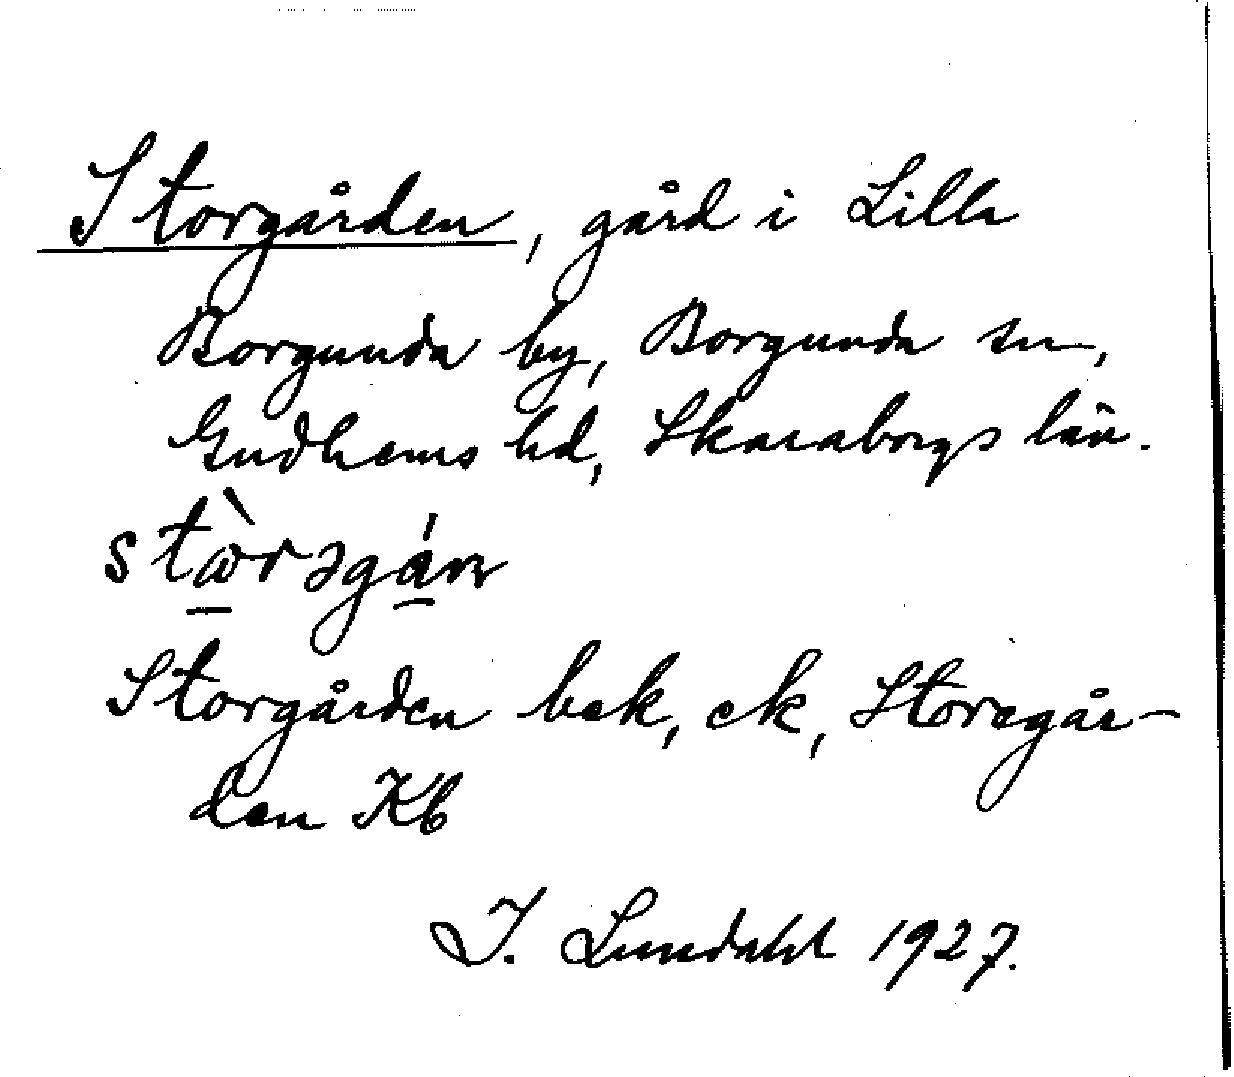 Storgården, gård i Lilla
Borgunda by, Borgunda sn,
Gudhems hd, Skaraborgs län.
Storgården bek, ek, Storegår-
den Kb
I. Lundahl 1927.